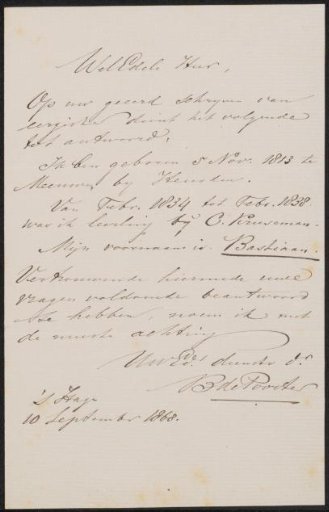 WelEdele Heer,
Op uw geëerd schrijven van
eergister dient het volgende
tot antwoord.
Ik ben geboren 5 Nov. 1813 te
Meeuwen by Heusden.
Van Febr. 1834 tot Febr. 1838
was ik leerling by C. Kruseman.
Mijn voornaam is Bastiaan.
Vertrouwende hiermede uwe
vragen voldoende beantwoord
te hebben, noem ik met
de meeste achting
UwEd. dienstw. dr.
B de Poorter
's Hage
10 September 1868.